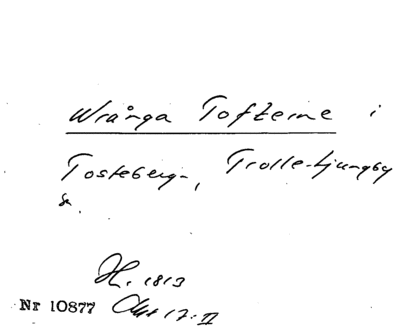 Wrånga Tofterne i
Tosteberga, Trolle-Ljungby
s.
H. 1813
Nr 10877 Akt 17:II